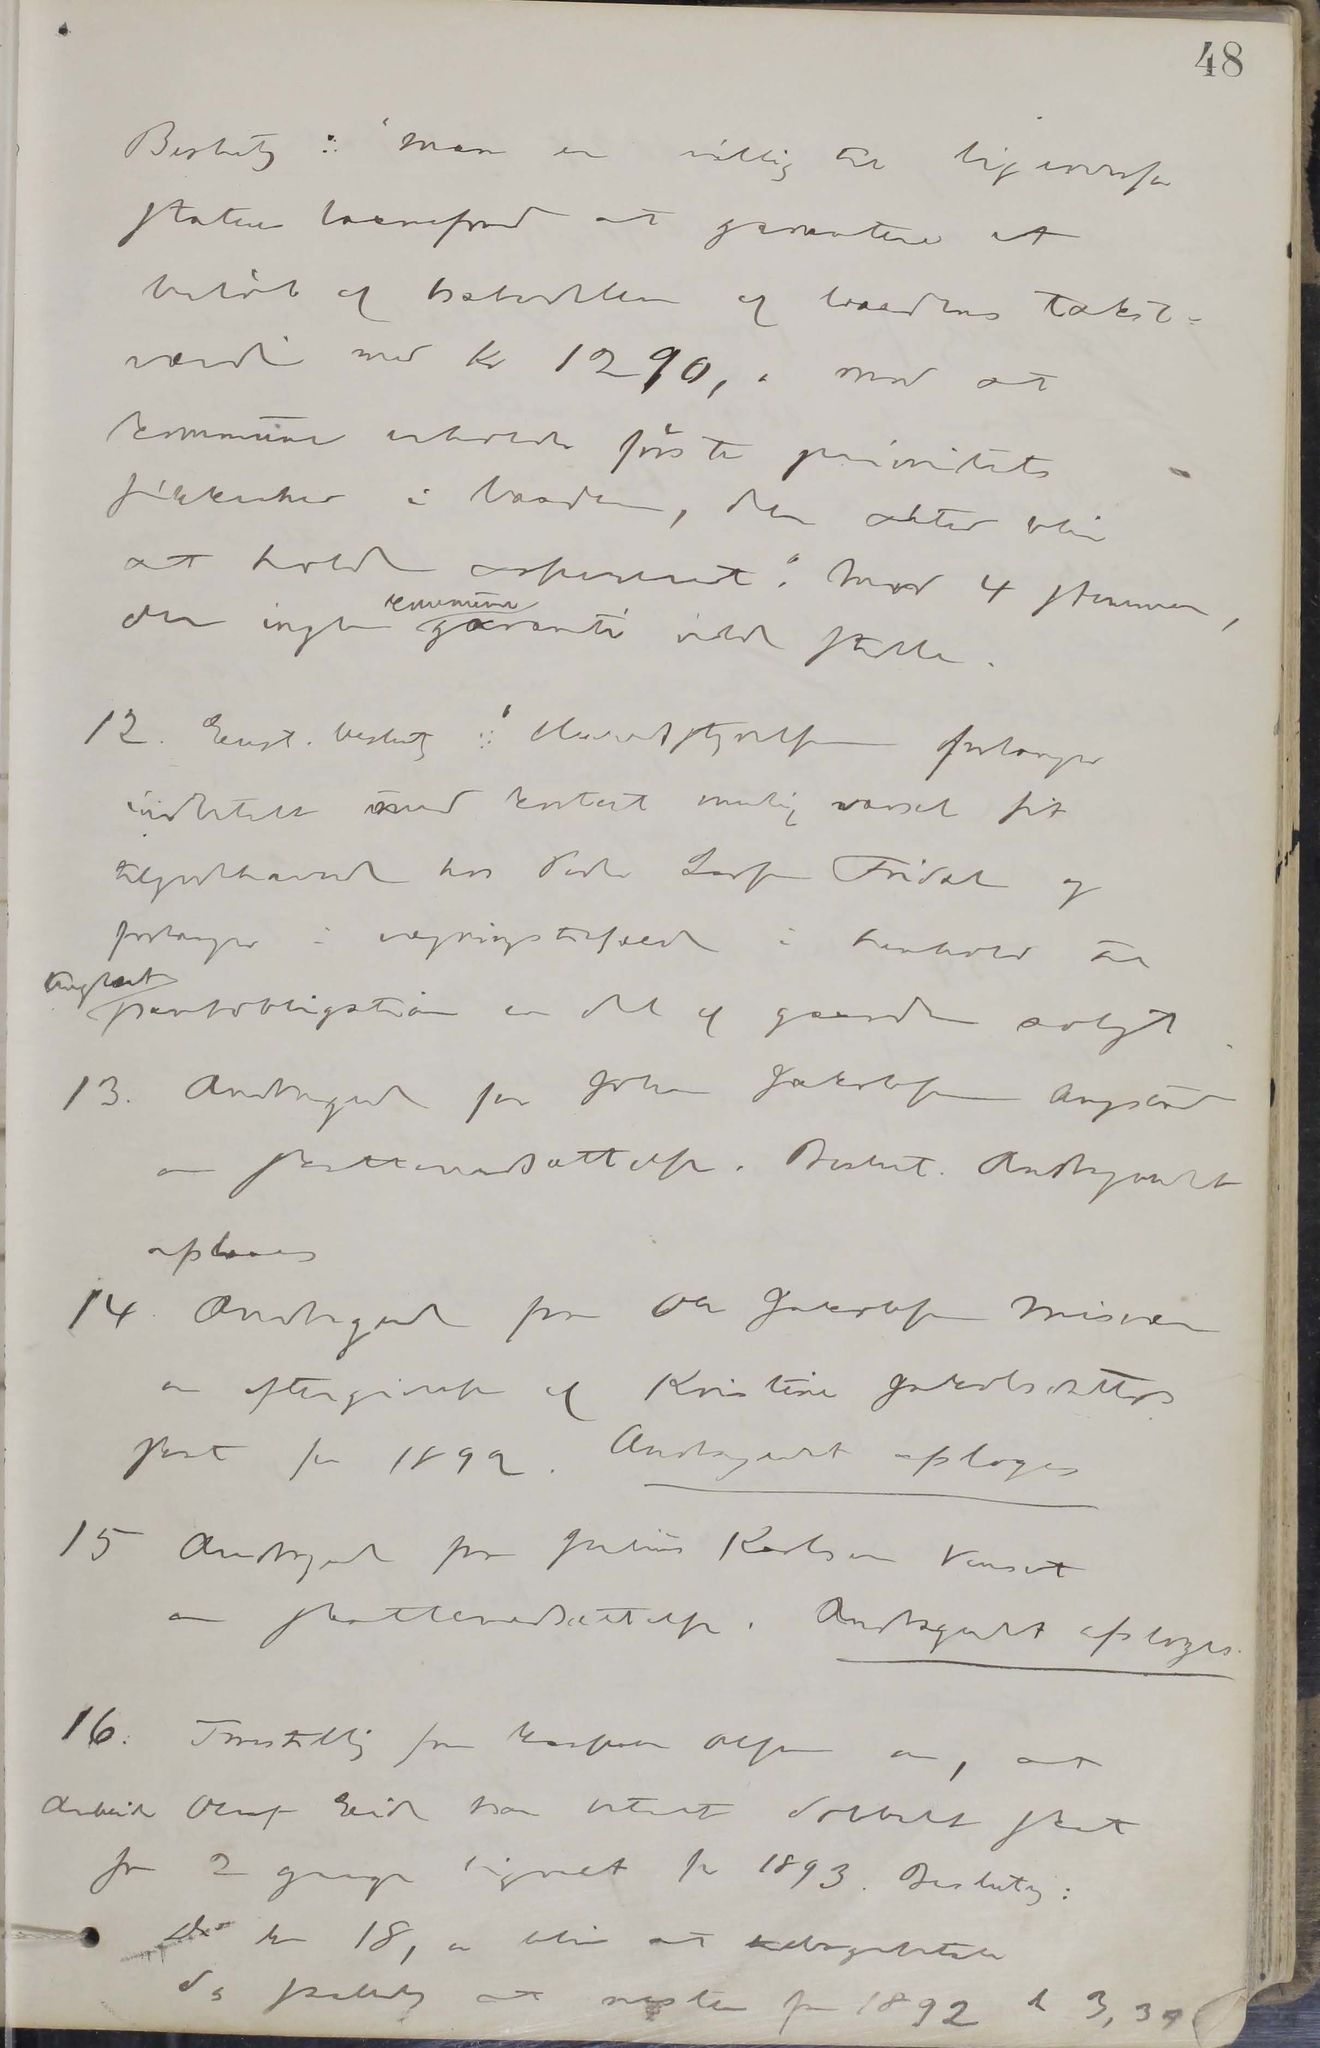 48
Beslutn :: "Man er villig til ligeoverfor
statens laanefond at garantere et
beløb af halvdelen af baadens takst-
værdi med kr 1290, " mod at
kommunen erholder første prioritets
sikkerhed i baaden, der atter blir
at holde assureret". Mod 4 stemmer,
der ingen kommune garanti vilde stille.
12. Enst. beslutn :: "Herredsstyrelsen forlanger
indbetalt med kortest mulig varsel sit
tilgodehavende hos Peder Larsen Fridal og
forlanger i vægringstilfælde i henhold til
tinglæst pantobligation en del af gaarden solgt.
13. Andragende fra Johan Jakobsen
om skattenedsættelse. Beslut. Andragendet
afslaaes
14 Andragende fra Ole Jakobsen Misvær
om eftergivelse af Kristine Jakobsdatters
skat for 1892. Andragendet afsloges
15 Andragende fra Julius Karlsen Venset
om skattenedsættelse. Andragendet afsloges.
16. Forestilling fra kasserer Olsen om, at
Arbeider Oluf Eide har betalt dobbelt skat
for 2 gange lignet for 1893. Beslutn:
kr 18, " blir at tilbagebetale
da at resten for 1892 kr 3,39